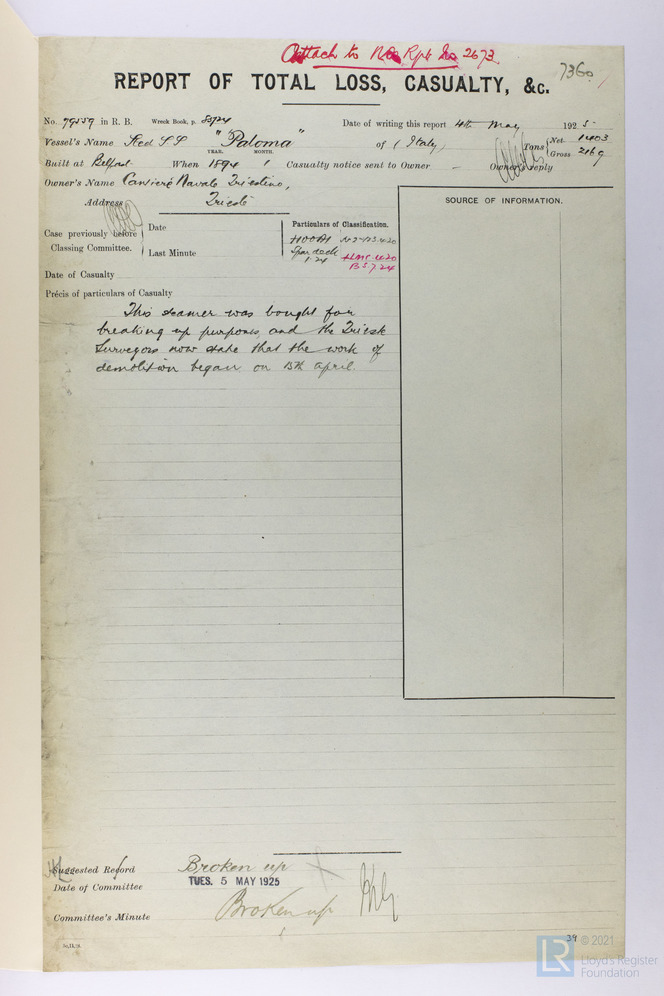 Attach to Rpt No 2673
7360
REPORT OF TOTAL LOSS, CASUALTY, &c.
No. 79559 in R. B. Wreck Book, p. Date of writing this report 4th May 1925
Vessel's Name Steel SS "Paloma" of (Italy) Tons { Net 1403
Gross 2169
YEAR. MONTH.
Built at Belfast When 1894 Casualty notice sent to Owner — Owner's reply
Owner's Name Cantiere Navale Triestino,
Address Trieste
SOURCE OF INFORMATION.
Case previously before Classing Committee. Date
Last Minute
Particulars of Classification.
+100A1
Spar deck
1.24
+LMC 4.20
BS 7.24
Date of Casualty
Précis of particulars of Casualty
This steamer was bought for
breaking up purposes, and the Trieste
Surveyors now state that the work of
demolition began on 15th April.
Suggested Record Broken up
Date of Committee TUES. 5 MAY 1925
Committee's Minute Broken up
39
© 2021
LR Lloyd's Register
Foundation